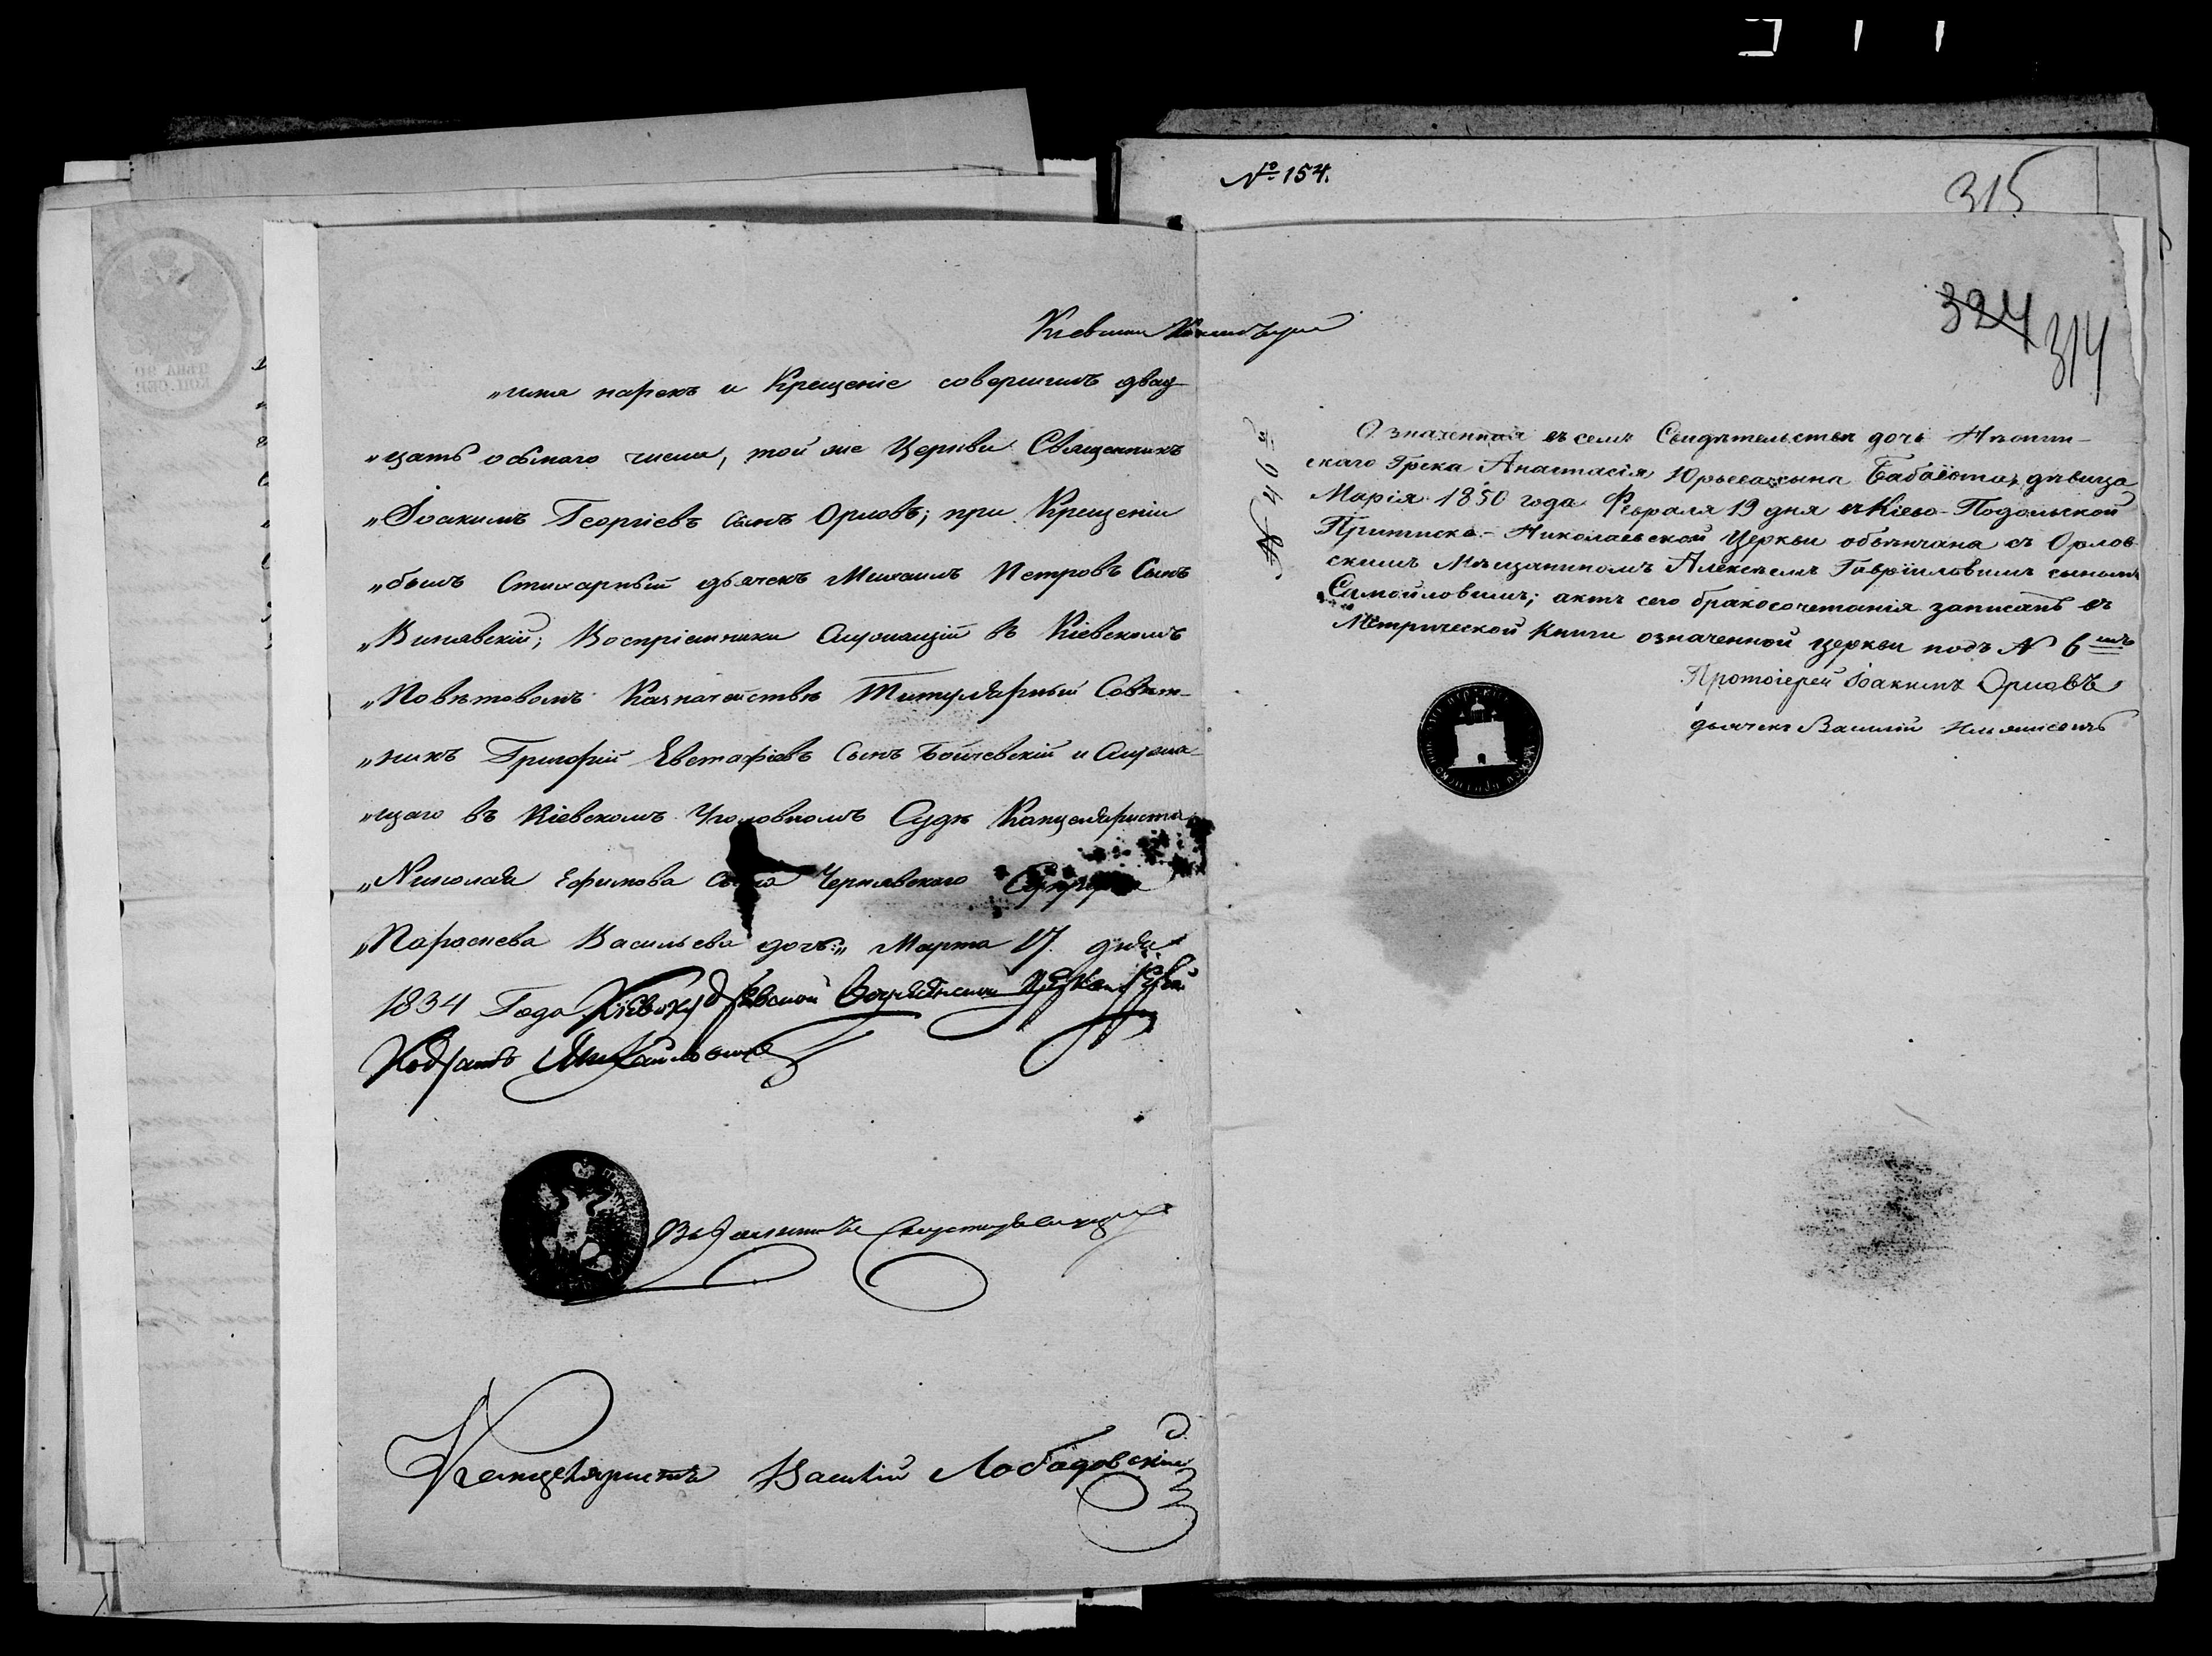 № 154.
315
324
314
„имя нарекъ и Крещеніе совершилъ двад-
„цать осьмаго числа, той же Церкви Священникъ
„Іоакимъ Георгіевъ сынъ Орловъ; при Крещеніи
„былъ Стихарный дьячекъ Михаилъ Петровъ Сынъ
„Воспріемники Служащій въ Кіевскомъ
„Повѣтовомъ Казначействѣ Титулярный Совѣт-
„никъ Григорій Евстафіевъ Сынъ Бойчевскій и Служа-
„щаго въ Кіевскомъ Уголовномъ Судѣ Канцеляриста
„Николая Ефимова сына Чернявского
„Параскева Васильева дочь:„ Марта 17. дня
1834 Года
Кодратъ
Канцеляристъ Василій Лободовскій
Означенная въ семъ Свидѣтельствѣ дочь Нѣжин-
скаго Грека Анастасія Юрьева сына дѣвица
Марія 1850 года Февраля 19 дня въ Кіево-Подольской
Притиско-Николаевской Церкви обвѣнчана съ Орлов-
скимъ Мѣщаниномъ Алексѣемъ Гавріиловымъ сыномъ
Самойловымъ; актъ сего бракосочетанія записанъ въ
Метрической Книги означенной церкви подъ № 6мъ
Протоіерей Іоакимъ Орловъ
дьячекъ Василій